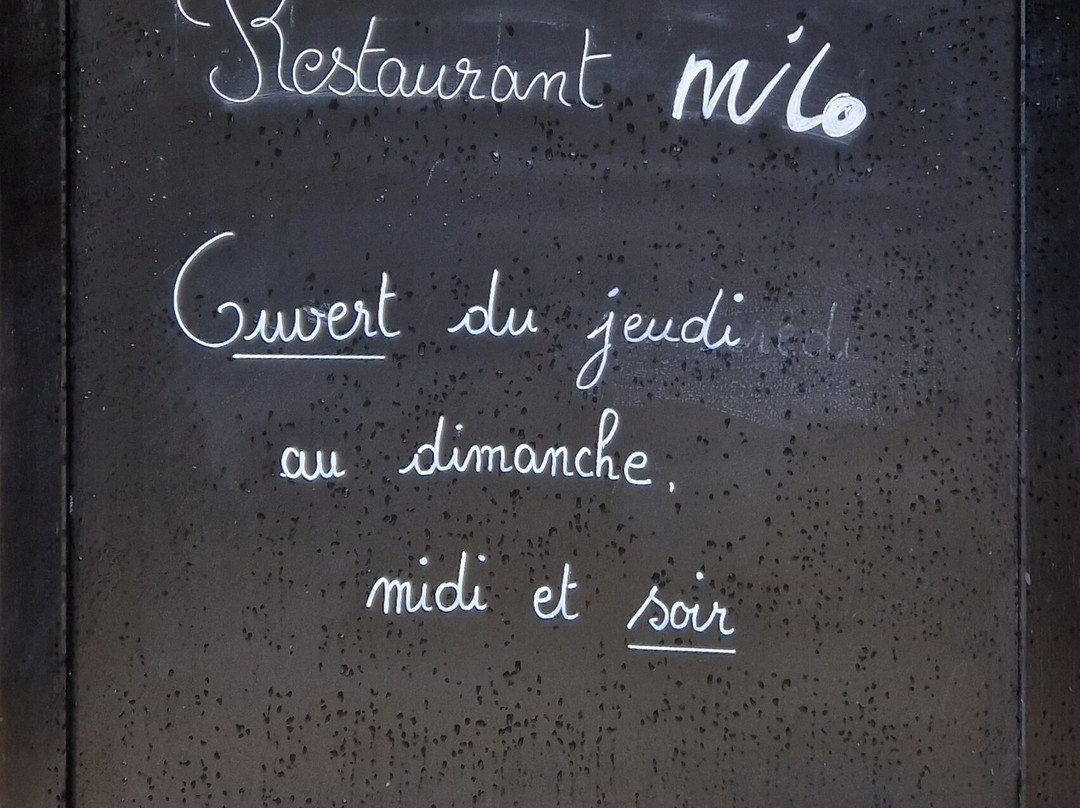 Restaurant milo
Ouvert du jeudi
au dimanche,
midi et soir